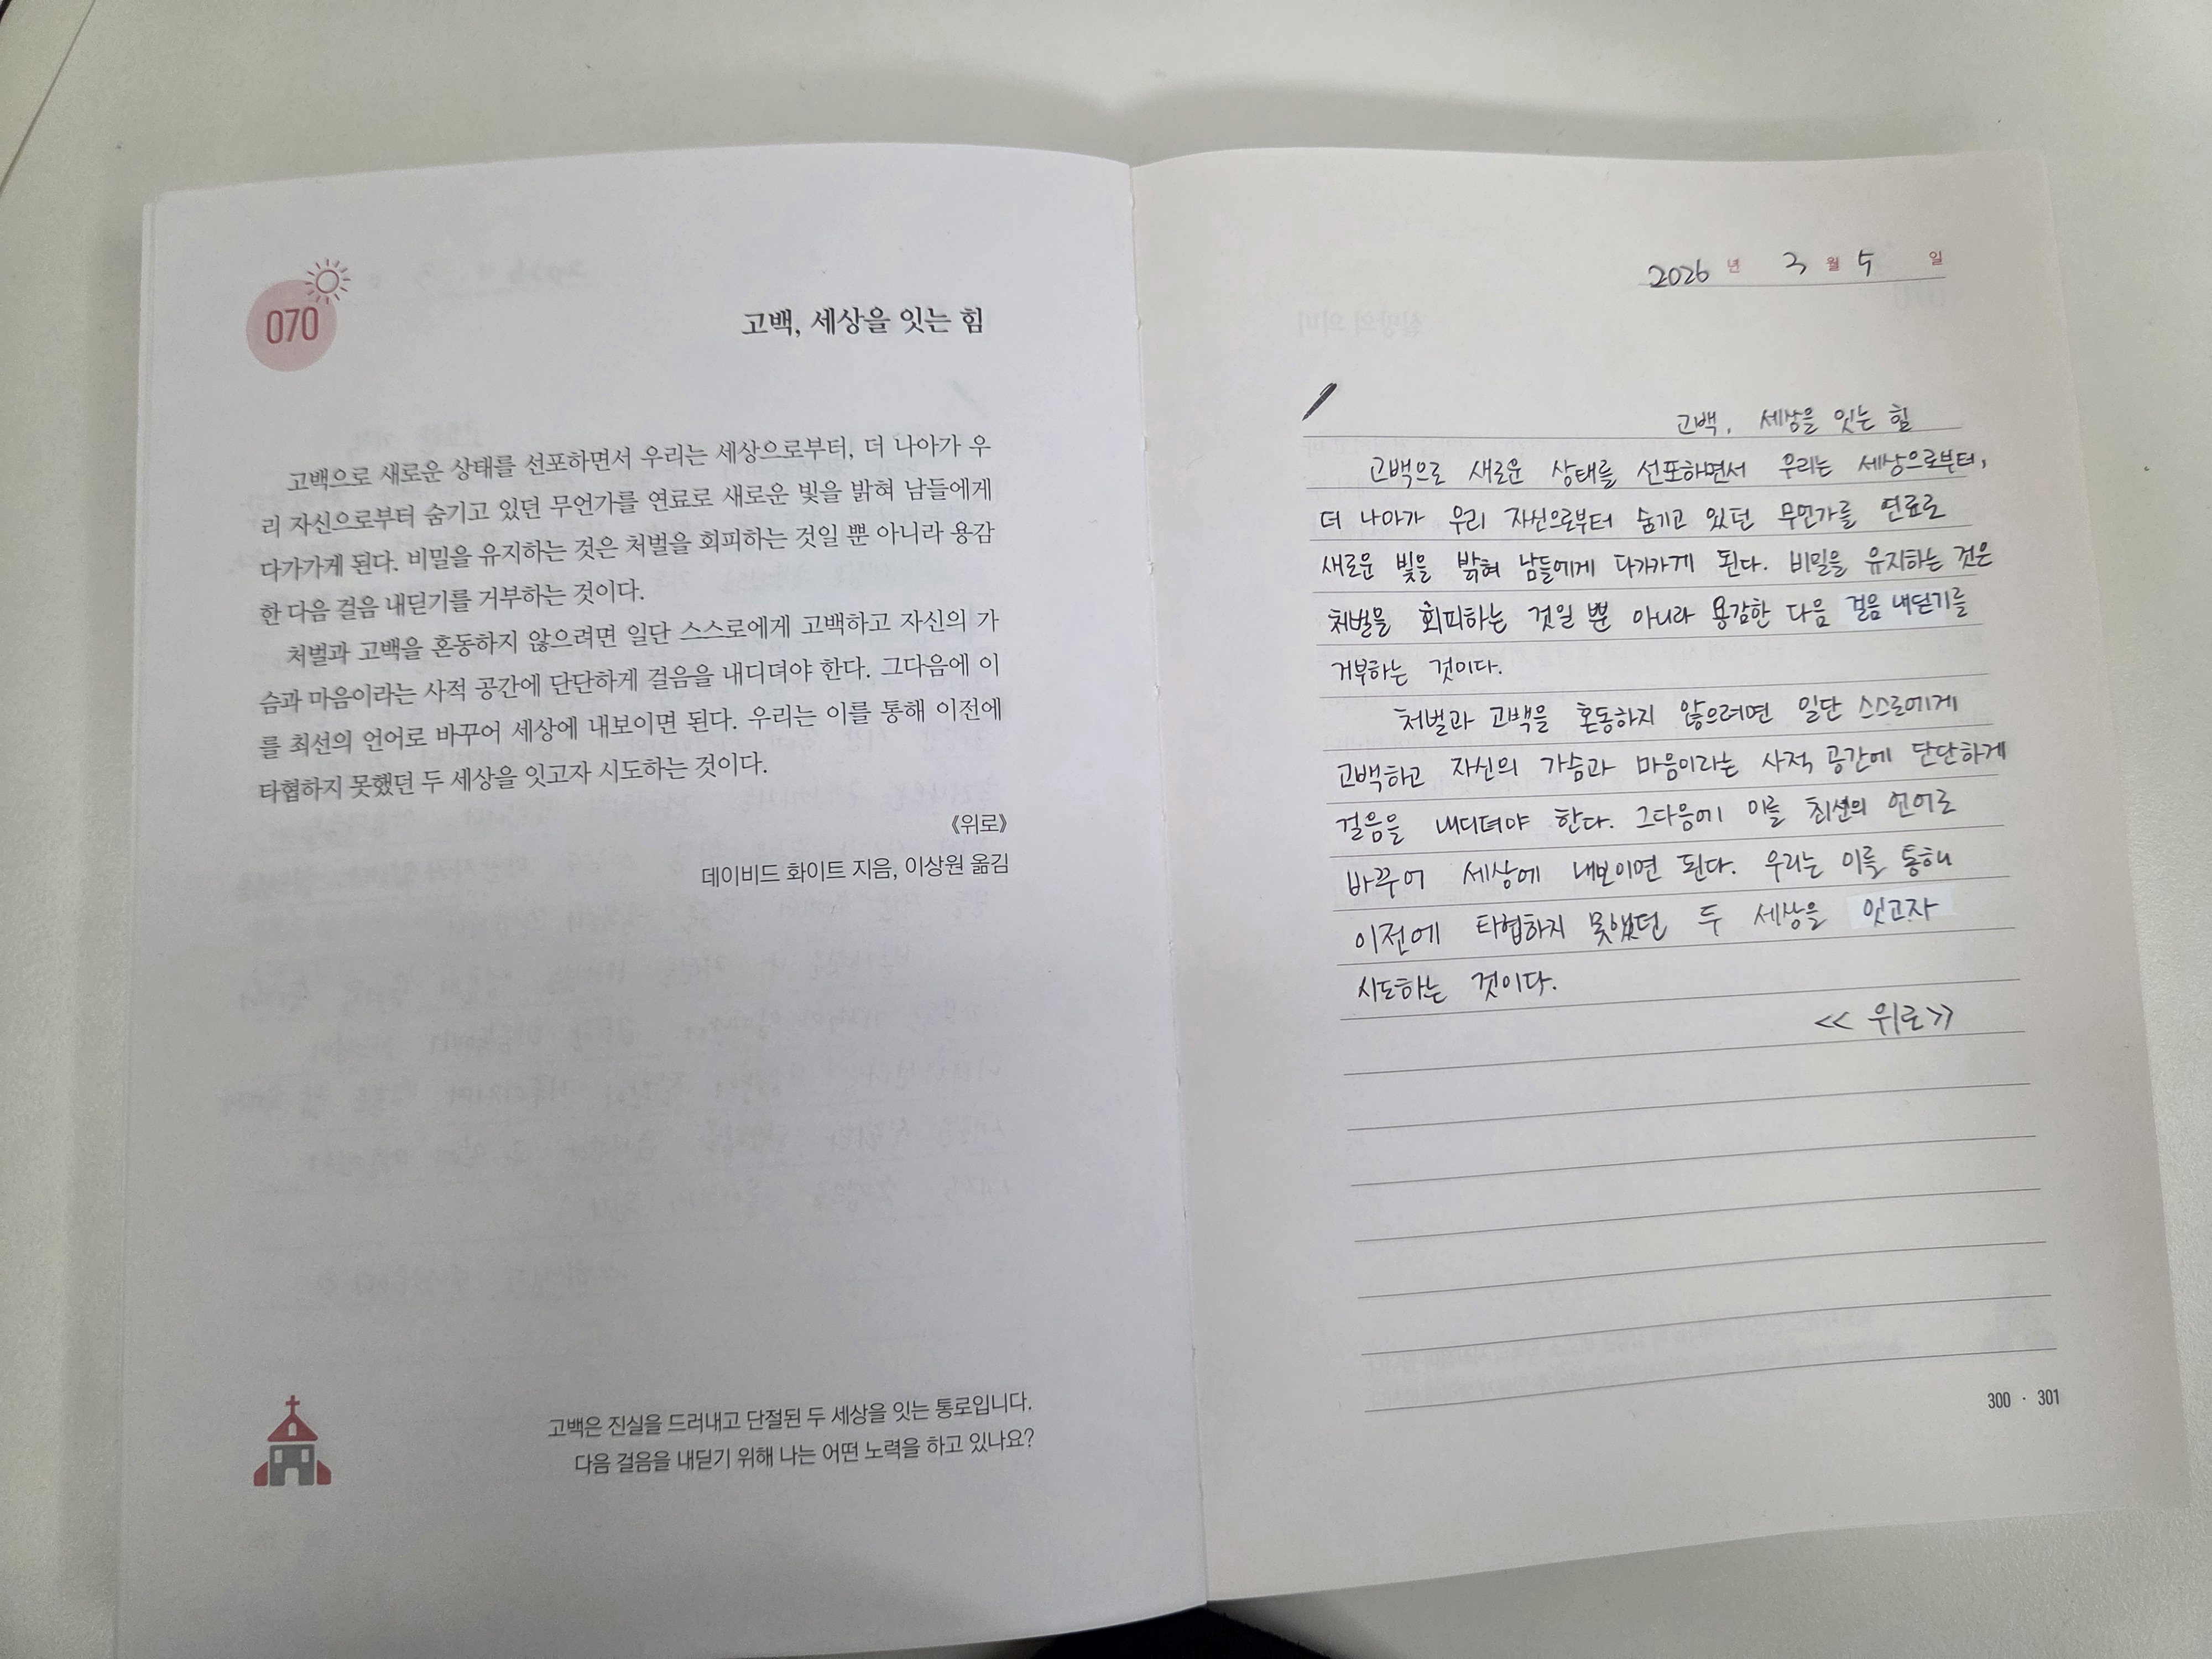 070
고백, 세상을 잇는 힘
고백으로 새로운 상태를 선포하면서 우리는 세상으로부터, 더 나아가 우
리 자신으로부터 숨기고 있던 무언가를 연료로 새로운 빛을 밝혀 남들에게
다가가게 된다. 비밀을 유지하는 것은 처벌을 회피하는 것일 뿐 아니라 용감
한 다음 걸음 내딛기를 거부하는 것이다.
처벌과 고백을 혼동하지 않으려면 일단 스스로에게 고백하고 자신의 가
슴과 마음이라는 사적 공간에 단단하게 걸음을 내디뎌야 한다. 그다음에 이
를 최선의 언어로 바꾸어 세상에 내보이면 된다. 우리는 이를 통해 이전에
타협하지 못했던 두 세상을 잇고자 시도하는 것이다.
《위로》
데이비드 화이트 지음, 이상원 옮김
고백은 진실을 드러내고 단절된 두 세상을 잇는 통로입니다.
다음 걸음을 내딛기 위해 나는 어떤 노력을 하고 있나요?
2026 년 3 월 5 일
고백, 세상을 잇는 힘
고백으로 새로운 상태를 선포하면서 우리는 세상으로부터,
더 나아가 우리 자신으로부터 숨기고 있던 무언가를 연료로
새로운 빛을 밝혀 남들에게 다가가게 된다. 비밀을 유지하는 것은
처벌을 회피하는 것일 뿐 아니라 용감한 다음 걸음 내딛기를
거부하는 것이다.
처벌과 고백을 혼동하지 않으려면 일단 스스로에게
고백하고 자신의 가슴과 마음이라는 사적 공간에 단단하게
걸음을 내디뎌야 한다. 그다음에 이를 최선의 언어로
바꾸어 세상에 내보이면 된다. 우리는 이를 통해
이전에 타협하지 못했던 두 세상을 잇고자
시도하는 것이다.
<< 위로>>
300 · 301